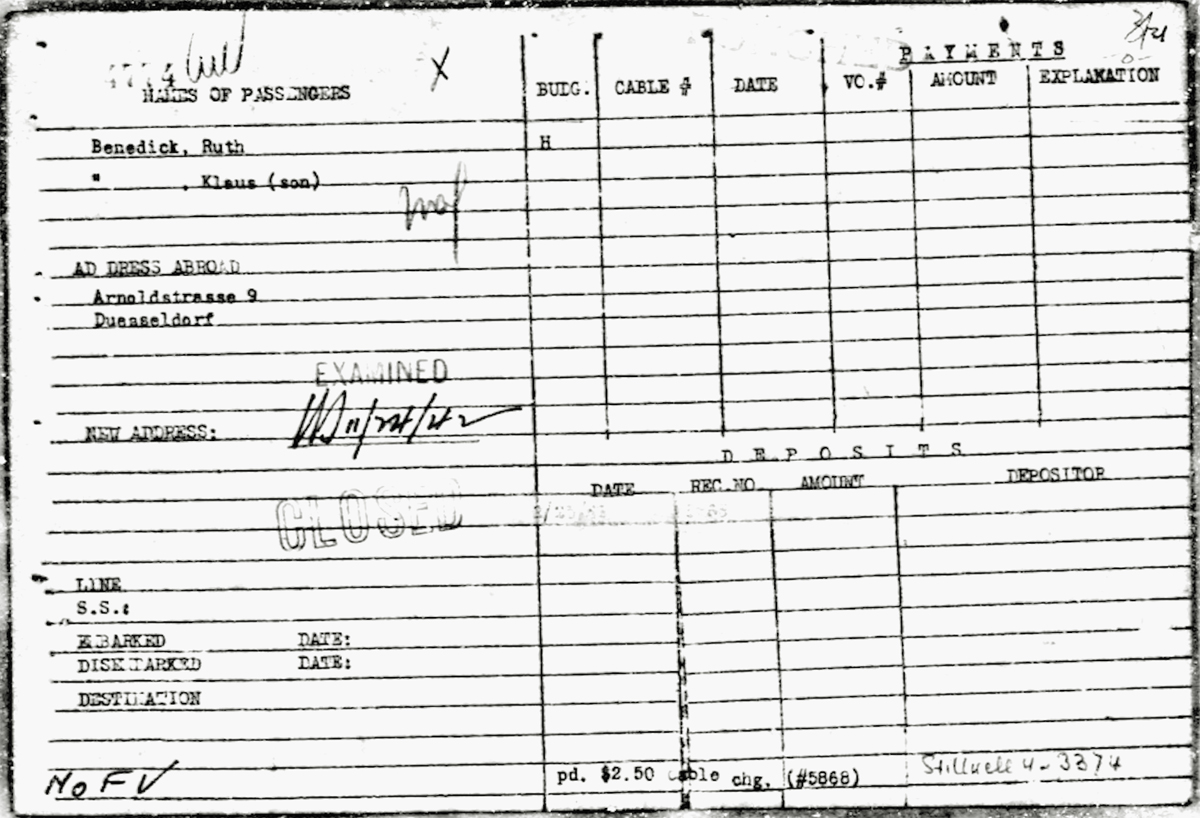 PAYMENTS
X
NAMES OF PASSENGERS BUDG. CABLE # DATE VO.# AMOUNT EXPLANATION
Benedick, Ruth H
" , Klaus (son)
ADDRESS ABROAD
Arnoldstrasse 9
Duesseldorf
EXAMINED
11/24/42
NEW ADDRESS:
DEPOSITS
DATE REC.NO. AMOUNT DEPOSITOR
CLOSED
LINE
S.S.:
EMBARKED DATE:
DISEMBARKED DATE:
DESTINATION
No FV
pd. $2.50 cable chg. (#5868) Stillwell 4-3374